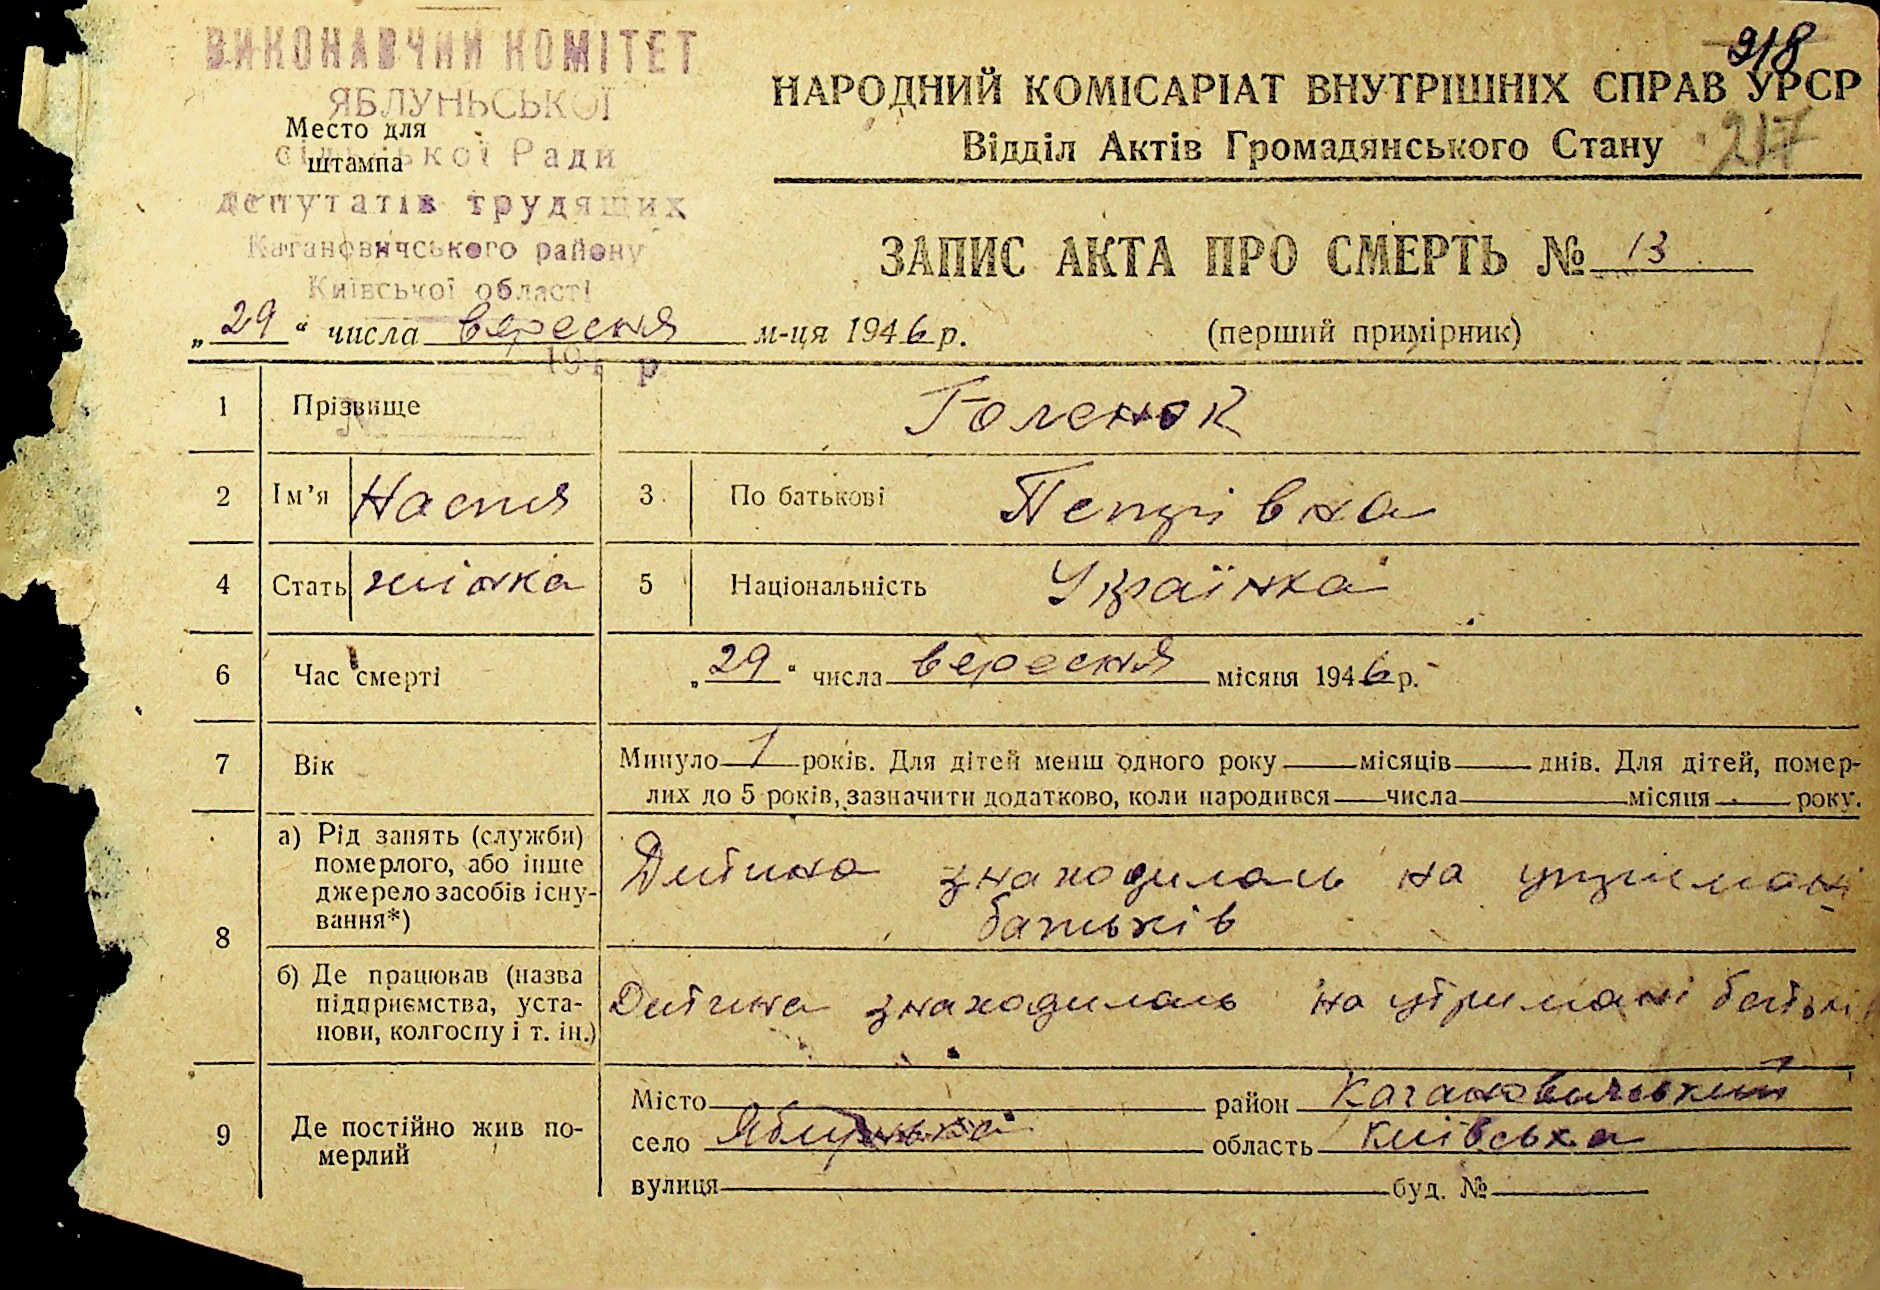 ВИКОНАВЧИЙ КОМІТЕТ
ЯБЛУНЬСЬКОЇ
сільської Ради
депутатів трудящих
Кагановичського району
Київської області
194 р.
Место для
штампа
218
217
НАРОДНИЙ КОМІСАРІАТ ВНУТРІШНІХ СПРАВ УРСР
Відділ Актів Громадянського Стану
ЗАПИС АКТА ПРО СМЕРТЬ № 13
„29“ числа вересня м-ця 1946 р.
(перший примірник)
1 Прізвище Голенок
2 Ім’я Настя 3 По батькові Петрівна
4 Стать жінка 5 Національність Українка
6 Час смерті „29“ числа вересня місяця 1946 р.
7 Вік Минуло 1 років. Для дітей менш одного року місяців днів. Для дітей, помер-
лих до 5 років, зазначити додатково, коли народився числа місяця року.
8 а) Рід занять (служби)
померлого, або інше
джерело засобів існу-
вання*)
Дитина знаходилась на утримані
батьків
б) Де працював (назва
підприємства, уста-
нови, колгоспу і т. ін.)
Дитина знаходилась на утримані батьків
9 Де постійно жив по-
мерлий
Місто район Кагановичський
село область Київська
вулиця буд. №